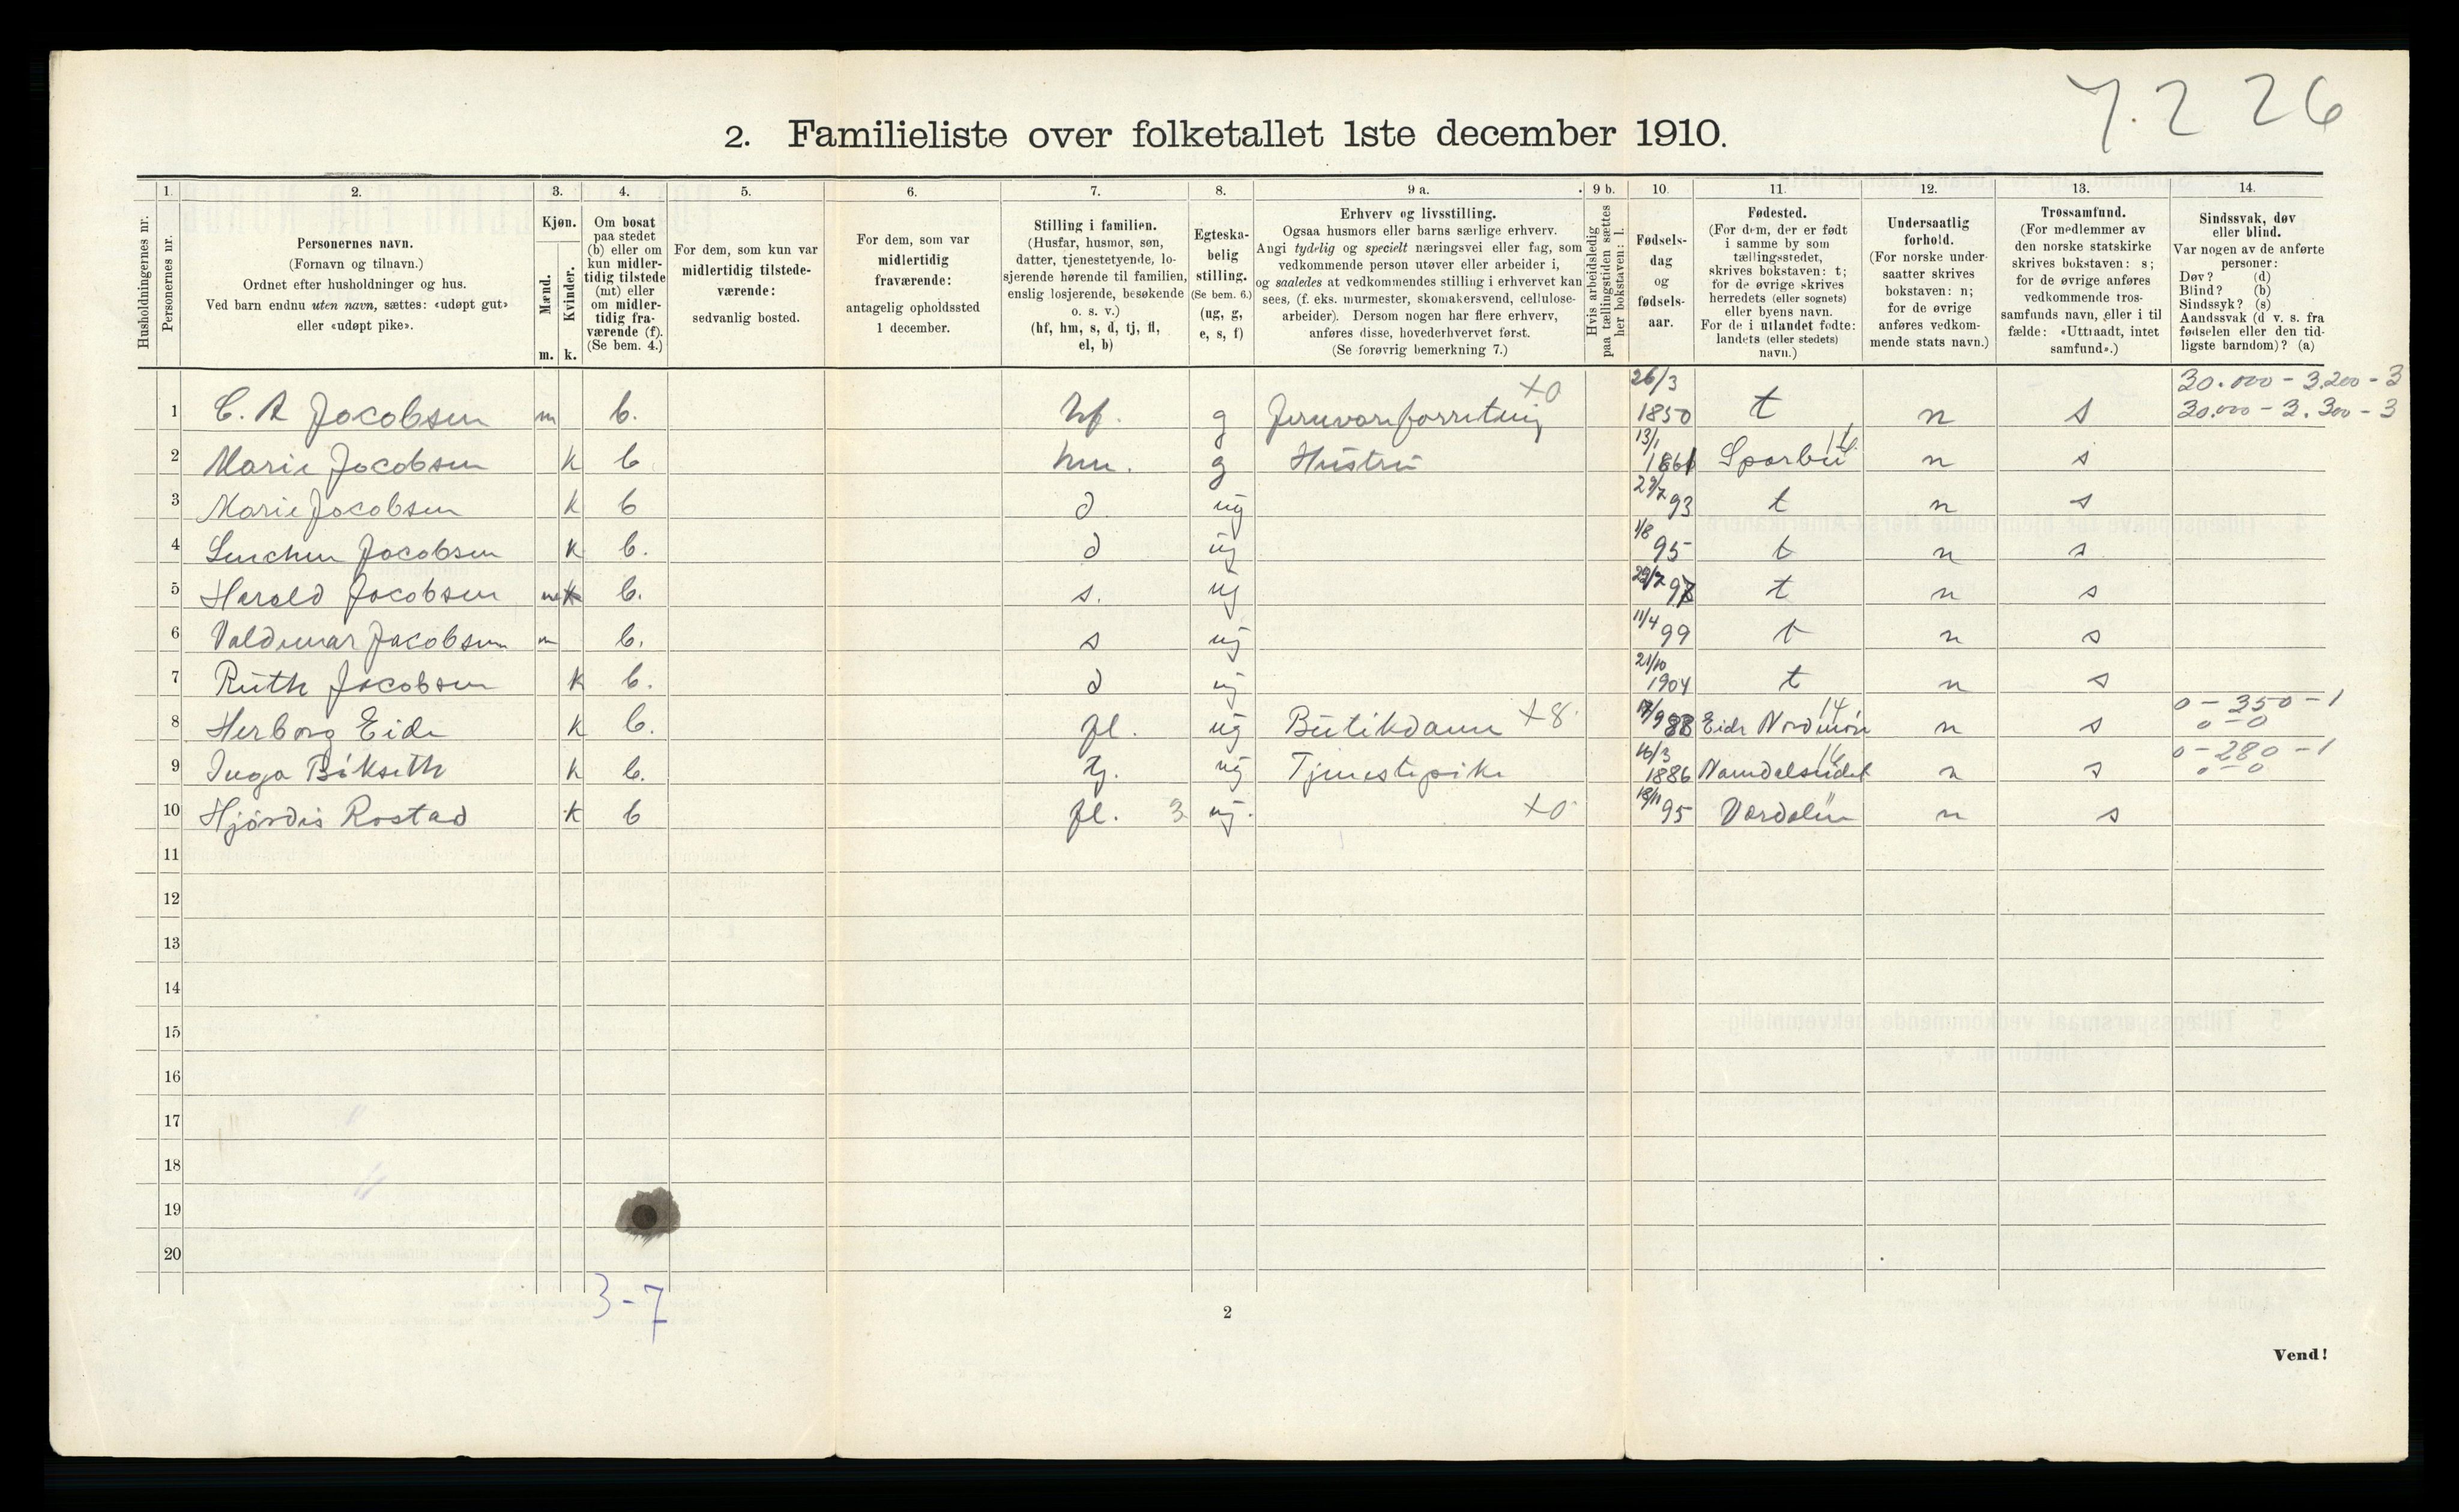 7.2 26
2. Familieliste over folketallet 1ste december 1910.
1. 2. 3. 4. 5. 6. 7. 8. 9 a. 9 b. 10. 11. 12. 13. 14.
Husholdningernes nr.
Personernes nr.
Personernes navn.
(Fornavn og tilnavn.)
Ordnet efter husholdninger og hus.
Ved barn endnu uten navn, sættes: «udøpt gut»
eller «udøpt pike».
Kjøn.
Mænd.
Kvinder.
m. k.
Om bosat
paa stedet
(b) eller om
kun midler-
tidig tilstede
(mt) eller
om midler-
tidig fra-
værende (f).
(Se bem. 4.)
For dem, som kun var
midlertidig tilstede-
værende:
sedvanlig bosted.
For dem, som var
midlertidig
fraværende:
antagelig opholdssted
1 december.
Stilling i familien.
(Husfar, husmor, søn,
datter, tjenestetyende, lo-
sjerende hørende til familien,
enslig losjerende, besøkende
o. s. v.)
(hf, hm, s, d, tj, fl,
el, b)
Egteska-
belig
stilling.
(Se bem. 6.)
(ug, g,
e, s, f)
Erhverv og livsstilling.
Ogsaa husmors eller barns særlige erhverv.
Angi tydelig og specielt næringsvei eller fag, som
vedkommende person utøver eller arbeider i,
og saaledes at vedkommendes stilling i erhvervet kan
sees, (f. eks. murmester, skomakersvend, cellulose-
arbeider). Dersom nogen har flere erhverv,
anføres disse, hovederhvervet først.
(Se forøvrig bemerkning 7.)
Hvis arbeidsledig
paa tællingstiden sættes
her bokstaven: l.
Fødsels-
dag
og
fødsels-
aar.
Fødested.
(For dem, der er født
i samme by som
tællingsstedet,
skrives bokstaven: t;
for de øvrige skrives
herredets (eller sognets)
eller byens navn.
For de i utlandet fødte:
landets (eller stedets)
navn.)
Undersaatlig
forhold.
(For norske under-
saatter skrives
bokstaven: n;
for de øvrige
anføres vedkom-
mende stats navn.)
Trossamfund.
(For medlemmer av
den norske statskirke
skrives bokstaven: s;
for de øvrige anføres
vedkommende tros-
samfunds navn, eller i til
fælde: «Uttraadt, intet
samfund».)
Sindssvak, døv
eller blind.
Var nogen av de anførte
personer:
Døv? (d)
Blind? (b)
Sindssyk? (s)
Aandssvak (d v. s. fra
fødselen eller den tid-
ligste barndom)? (a)
1 C. A Jacobsen m b. hf. g Jernvareforretning +0 26/3 1850 t n s 30.000 - 3.200 - 3
30.000 - 3.300 - 3
2 Marie Jacobsen k b hm. g Hustru 13/1 1861 Sparbu n s
3 Marie Jacobsen k b d ug 29/7 93 t n s
4 Jacobsen k b. d ug 1/8 95 t n s
5 Harald Jacobsen m k b. s. ug 29/7 97 t n s
6 Valdemar Jacobsen m b. s ug 11/4 99 t n s
7 Ruth Jacobsen k b. d ug 21/10 1904 t n s
8 Herborg Eide k b. fl. ug Butikdame +8 17/9 88 Eide Nordmøre 14 n s 0 - 350 - 1
0 - 0
9 Inga k b. tj. ug Tjenestepike 16/3 1886 Namdalseidet n s 0 - 280 - 1
0 - 0
10 Hjørdis Rostad k b fl. 3 ug. +0 18/11 95 Værdalen n s
11
12
13
14
15
16
17
18
19
20
3-7
2
Vend!